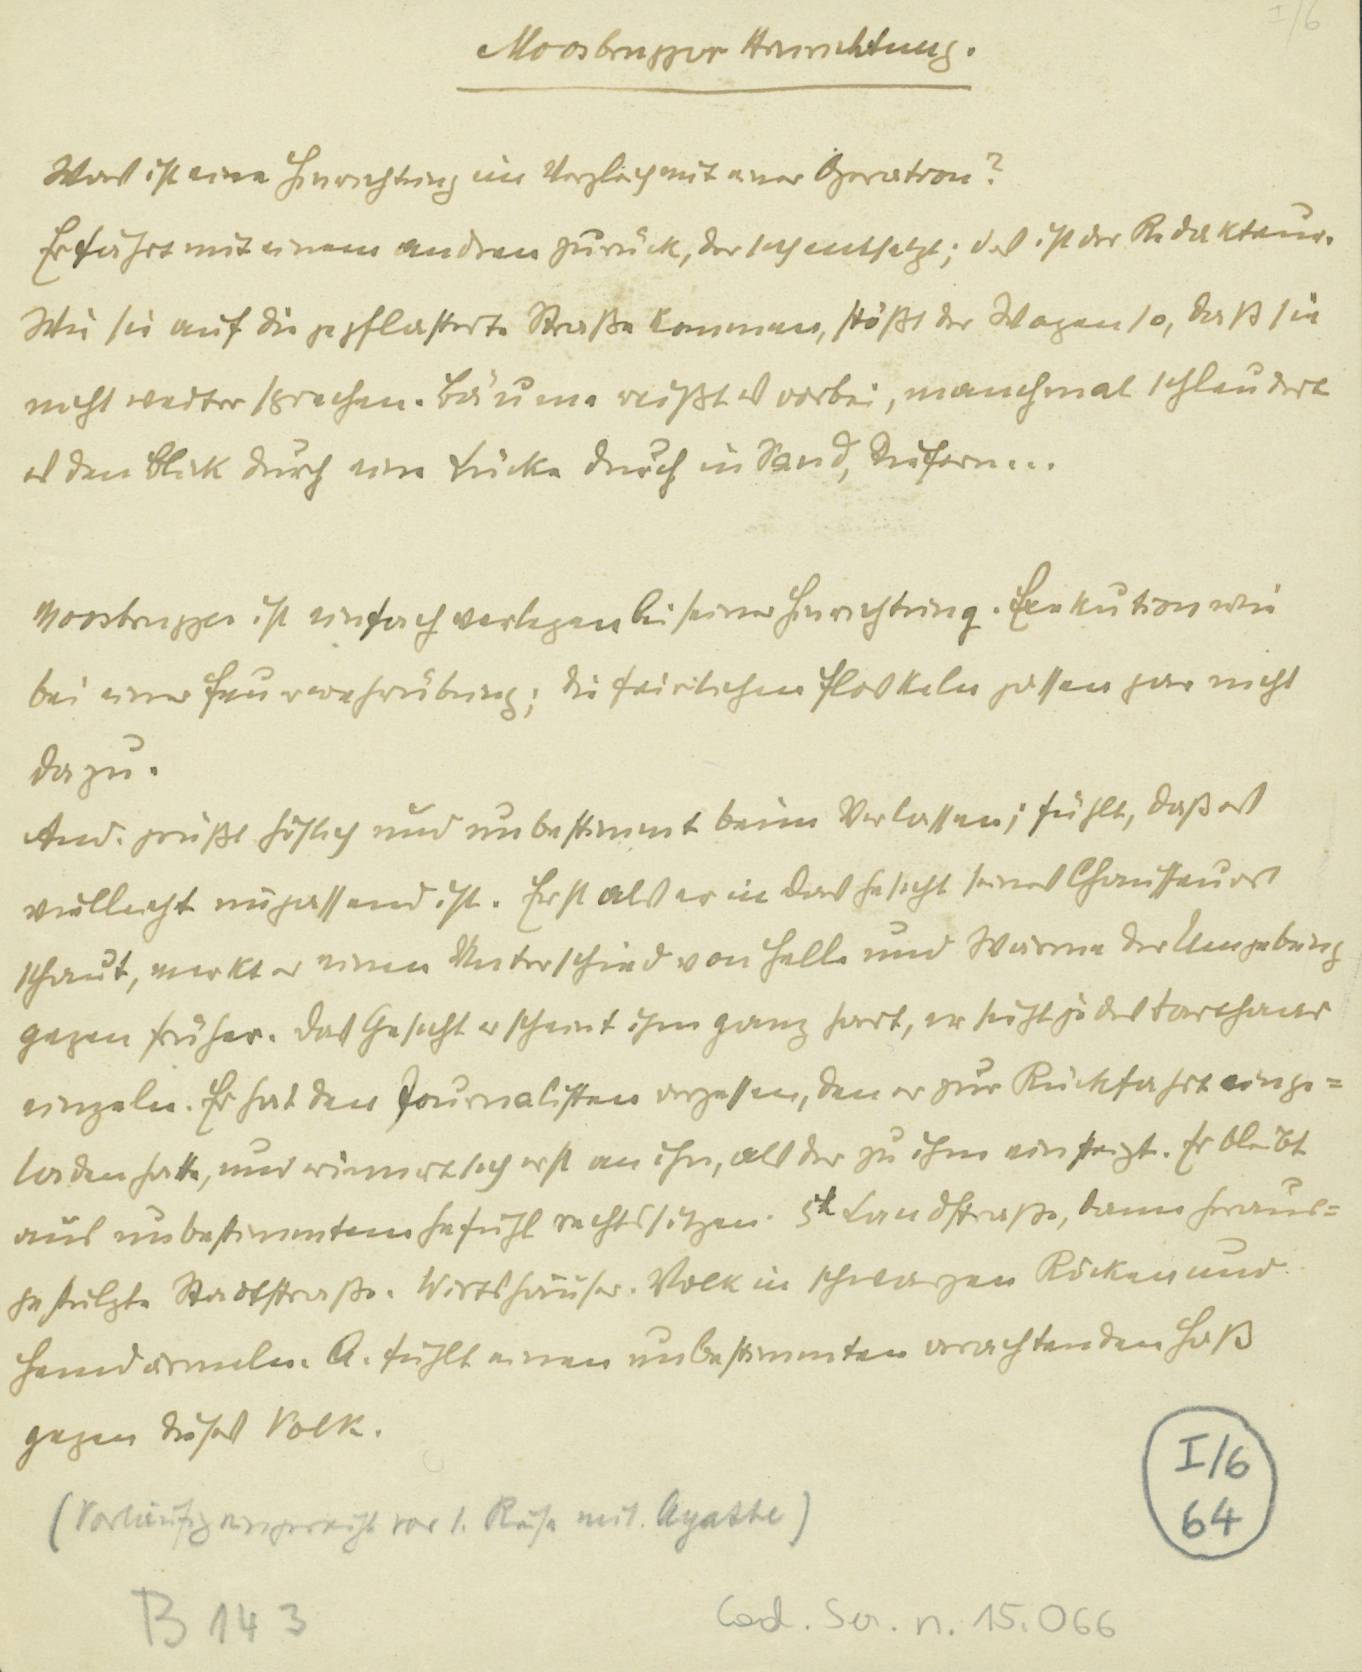 I/6
Moosbrugger Hinrichtung.
Was ist eine Hinrichtung im Vergleich mit einer Operation?
Er fährt mit einem andren zurück, der sich entsetzt; das ist der Redakteur.
Wie sie auf die gepflasterte Straße kommen, stößt der Wagen so, daß sie
nicht weiter sprechen. Bäume reißt es vorbei, manchmal schleudert
es den Blick durch eine Lücke durch in Sand, Kiefern...
Moosbrugger ist einfach verlegen bei seiner Hinrichtung. Exekution wie
bei einer Feuerwehrübung; die feierlichen Floskeln passen gar nicht
dazu.
And. grüßt höflich und unbestimmt beim Verlassen; fühlt, daß es
vielleicht unpassend ist. Erst als er in das Gesicht seines Chauffeurs
schaut, merkt er einen Unterschied von Helle und Wärme der Umgebung
gegen früher. Das Gesicht erscheint ihm ganz hart, er sieht jedes Barthaar
einzeln. Er hat den Journalisten vergessen, den er zur Rückfahrt einge=
laden hatte, und erinnert sich erst an ihn, als der zu ihm einsteigt. Er bleibt
aus unbestimmtem Gefühl rechts sitzen. Landstraße, dann heraus=
gestülpte Stadtstraße. Wirtshäuser. Volk in schwarzen Röcken und
Hemdärmeln. A. fühlt einen unbestimmten verachtenden Haß
gegen dieses Volk.
(Vorläufig eingereiht vor 1. Reise mit Agathe)
I/6
64
B 143
Cod. Ser. n. 15.066